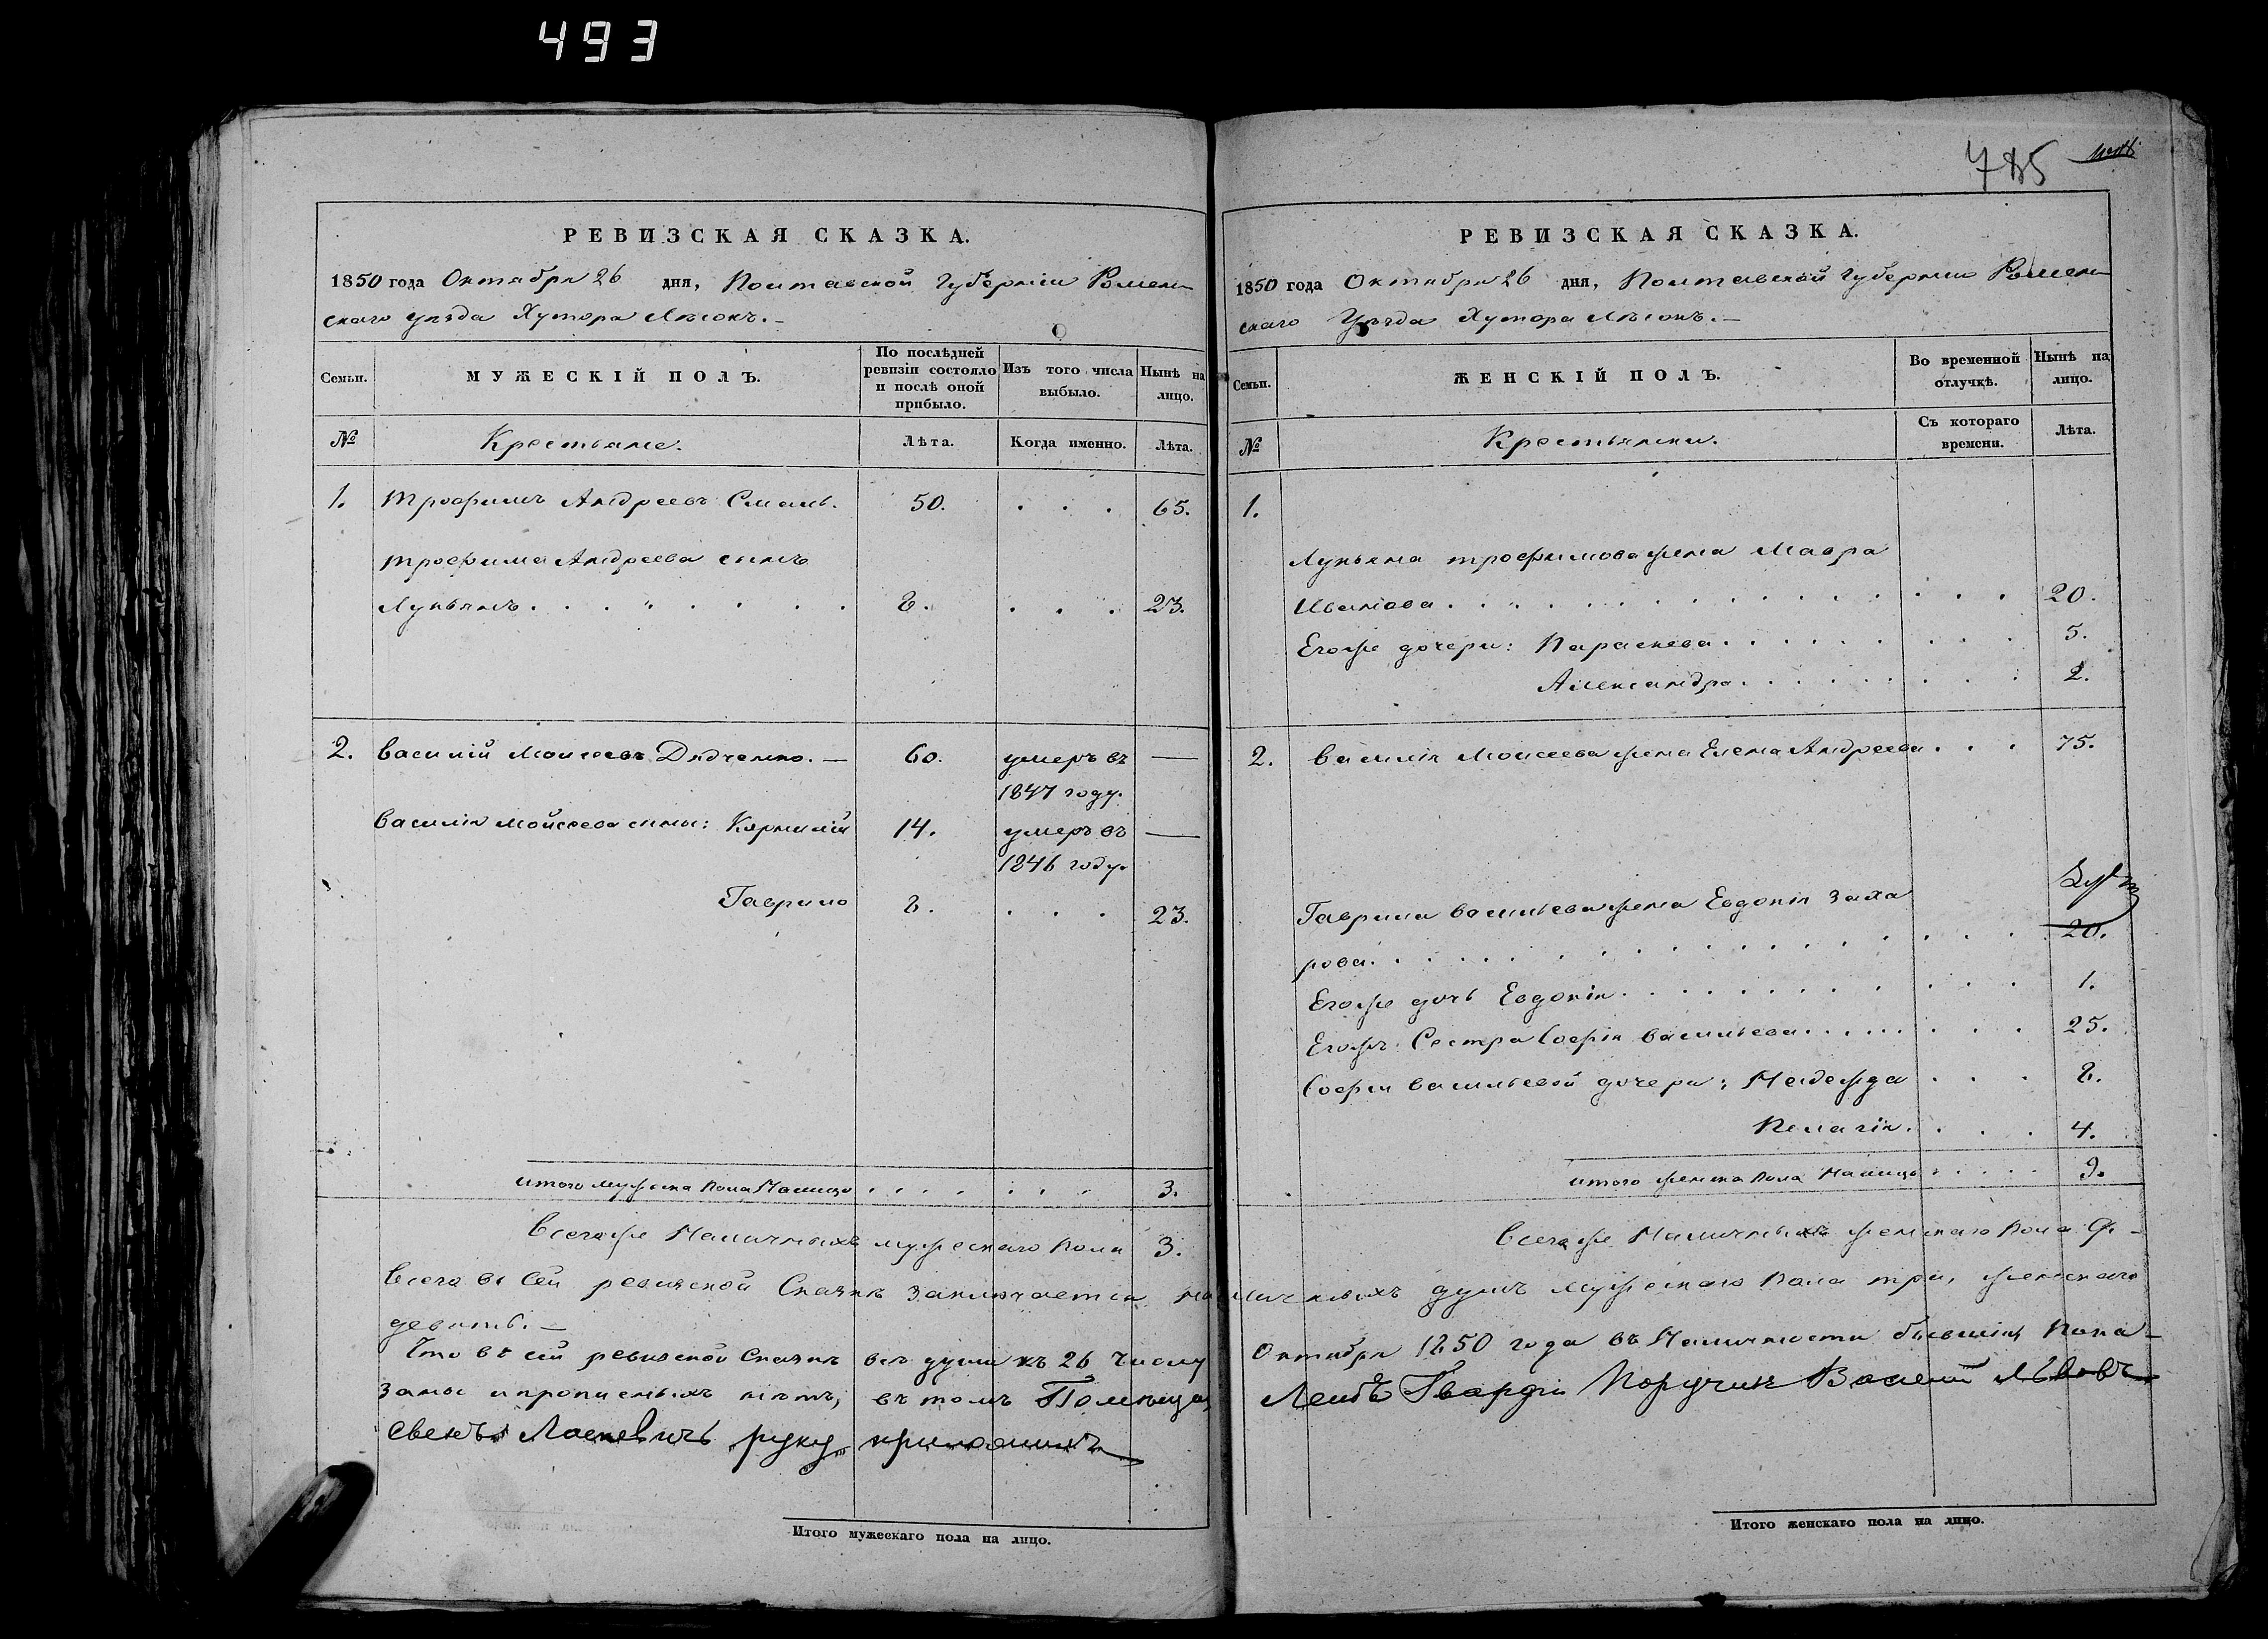 493
785
РЕВИЗСКАЯ СКАЗКА.
1850 года Октября 26 дня, Полтавской Губерніи Ромен
скаго уѣзда Хутора Лѣсокъ.—
Семьи.
МУЖЕСКІЙ ПОЛЪ.
По послѣдней ревизіи состояло и послѣ оной прибыло.
Изъ того числа выбыло.
Нынѣ на лицо.
№
Крестьяне.
Лѣта.
Когда именно.
Лѣта.
1. Трофимъ Андреевъ 50. . . . 65.
Трофима Андреева сынъ
Лукьянъ . . . . . . . 8. . . . 23.
2. Василій Моисеевъ Дядченко. — 60. умеръ въ —
1847 году.
Василія Моисеева сыны: Карнилій 14. умеръ въ —
1846 году.
Гаврило 8. . . . 23.
итого мужеска пола Налицо . . . . . . . 3.
Всегоже Наличныхъ мужескаго пола 3.
РЕВИЗСКАЯ СКАЗКА.
1850 года Октября 26 дня, Полтавской Губерніи Ромен
скаго Уѣзда Хутора Лѣсокъ.—
Семьи.
ЖЕНСКІЙ ПОЛЪ.
Во временной отлучкѣ.
Нынѣ на лицо.
№
Крестьянки.
Съ котораго времени.
Лѣта.
1.
Лукьяна трофимова жена Мавра
Иванова . . . . . . . . . . . . . 20.
Егоже дочери: Параскева . . . . . . . . 5.
Александра . . . . . . . . 2.
2. Василія Моисеева жена Елена Андреева . . . 75.
Гаврила Васильева жена Евдокія Заха
рова . . . . . . . . . . . . . 20.
Егоже дочь Евдокія . . . . . . . . . . 1.
Егожъ Сестра Софія Васильева . . . . . . . . 25.
Софіи Васильевой дочери: Надежда . . . 8.
Пелагія . . . . 4.
итого женска пола Налицо . . . . . 9.
Всегоже Наличныхъ женскаго пола 9. —
Всего въ сей ревизской Сказкѣ заключается наличныхъ душъ мужескаго пола три, женскаго
девять. —
Что въ сей ревизской сказкѣ всѣ души къ 26 числу Октября 1850 года въ Наличности бывшія пока-
заны и прописныхъ нѣтъ, въ томъ Помѣщикъ Лейбъ Гвардіи Поручик Василий Львовъ
Ласкевичъ руку приложилъ
Итого мужескаго пола на лицо.
Итого женскаго пола на лицо.